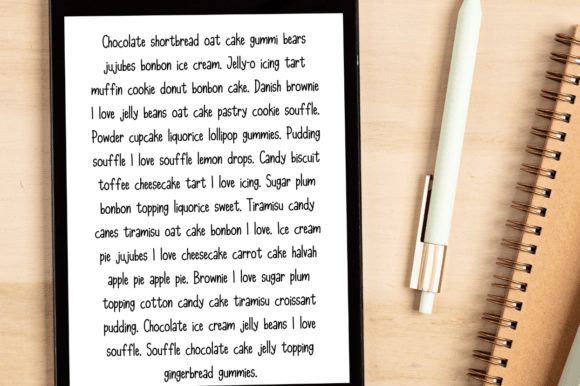 Chocolate shortbread oat cake gummi bears
jujubes bonbon ice cream. Jelly-o icing tart
muffin cookie donut bonbon cake. Danish brownie
I love jelly beans oat cake pastry cookie souffle.
Powder cupcake liquorice lollipop gummies. Pudding
souffle I love souffle lemon drops. Candy biscuit
toffee cheesecake tart I love icing. Sugar plum
bonbon topping liquorice sweet. Tiramisu candy
canes tiramisu oat cake bonbon I love. Ice cream
pie jujubes I love cheesecake carrot cake halvah
apple pie apple pie. Brownie I love sugar plum
topping cotton candy cake tiramisu croissant
pudding. Chocolate ice cream jelly beans I love
souffle. Souffle chocolate cake jelly topping
gingerbread gummies.